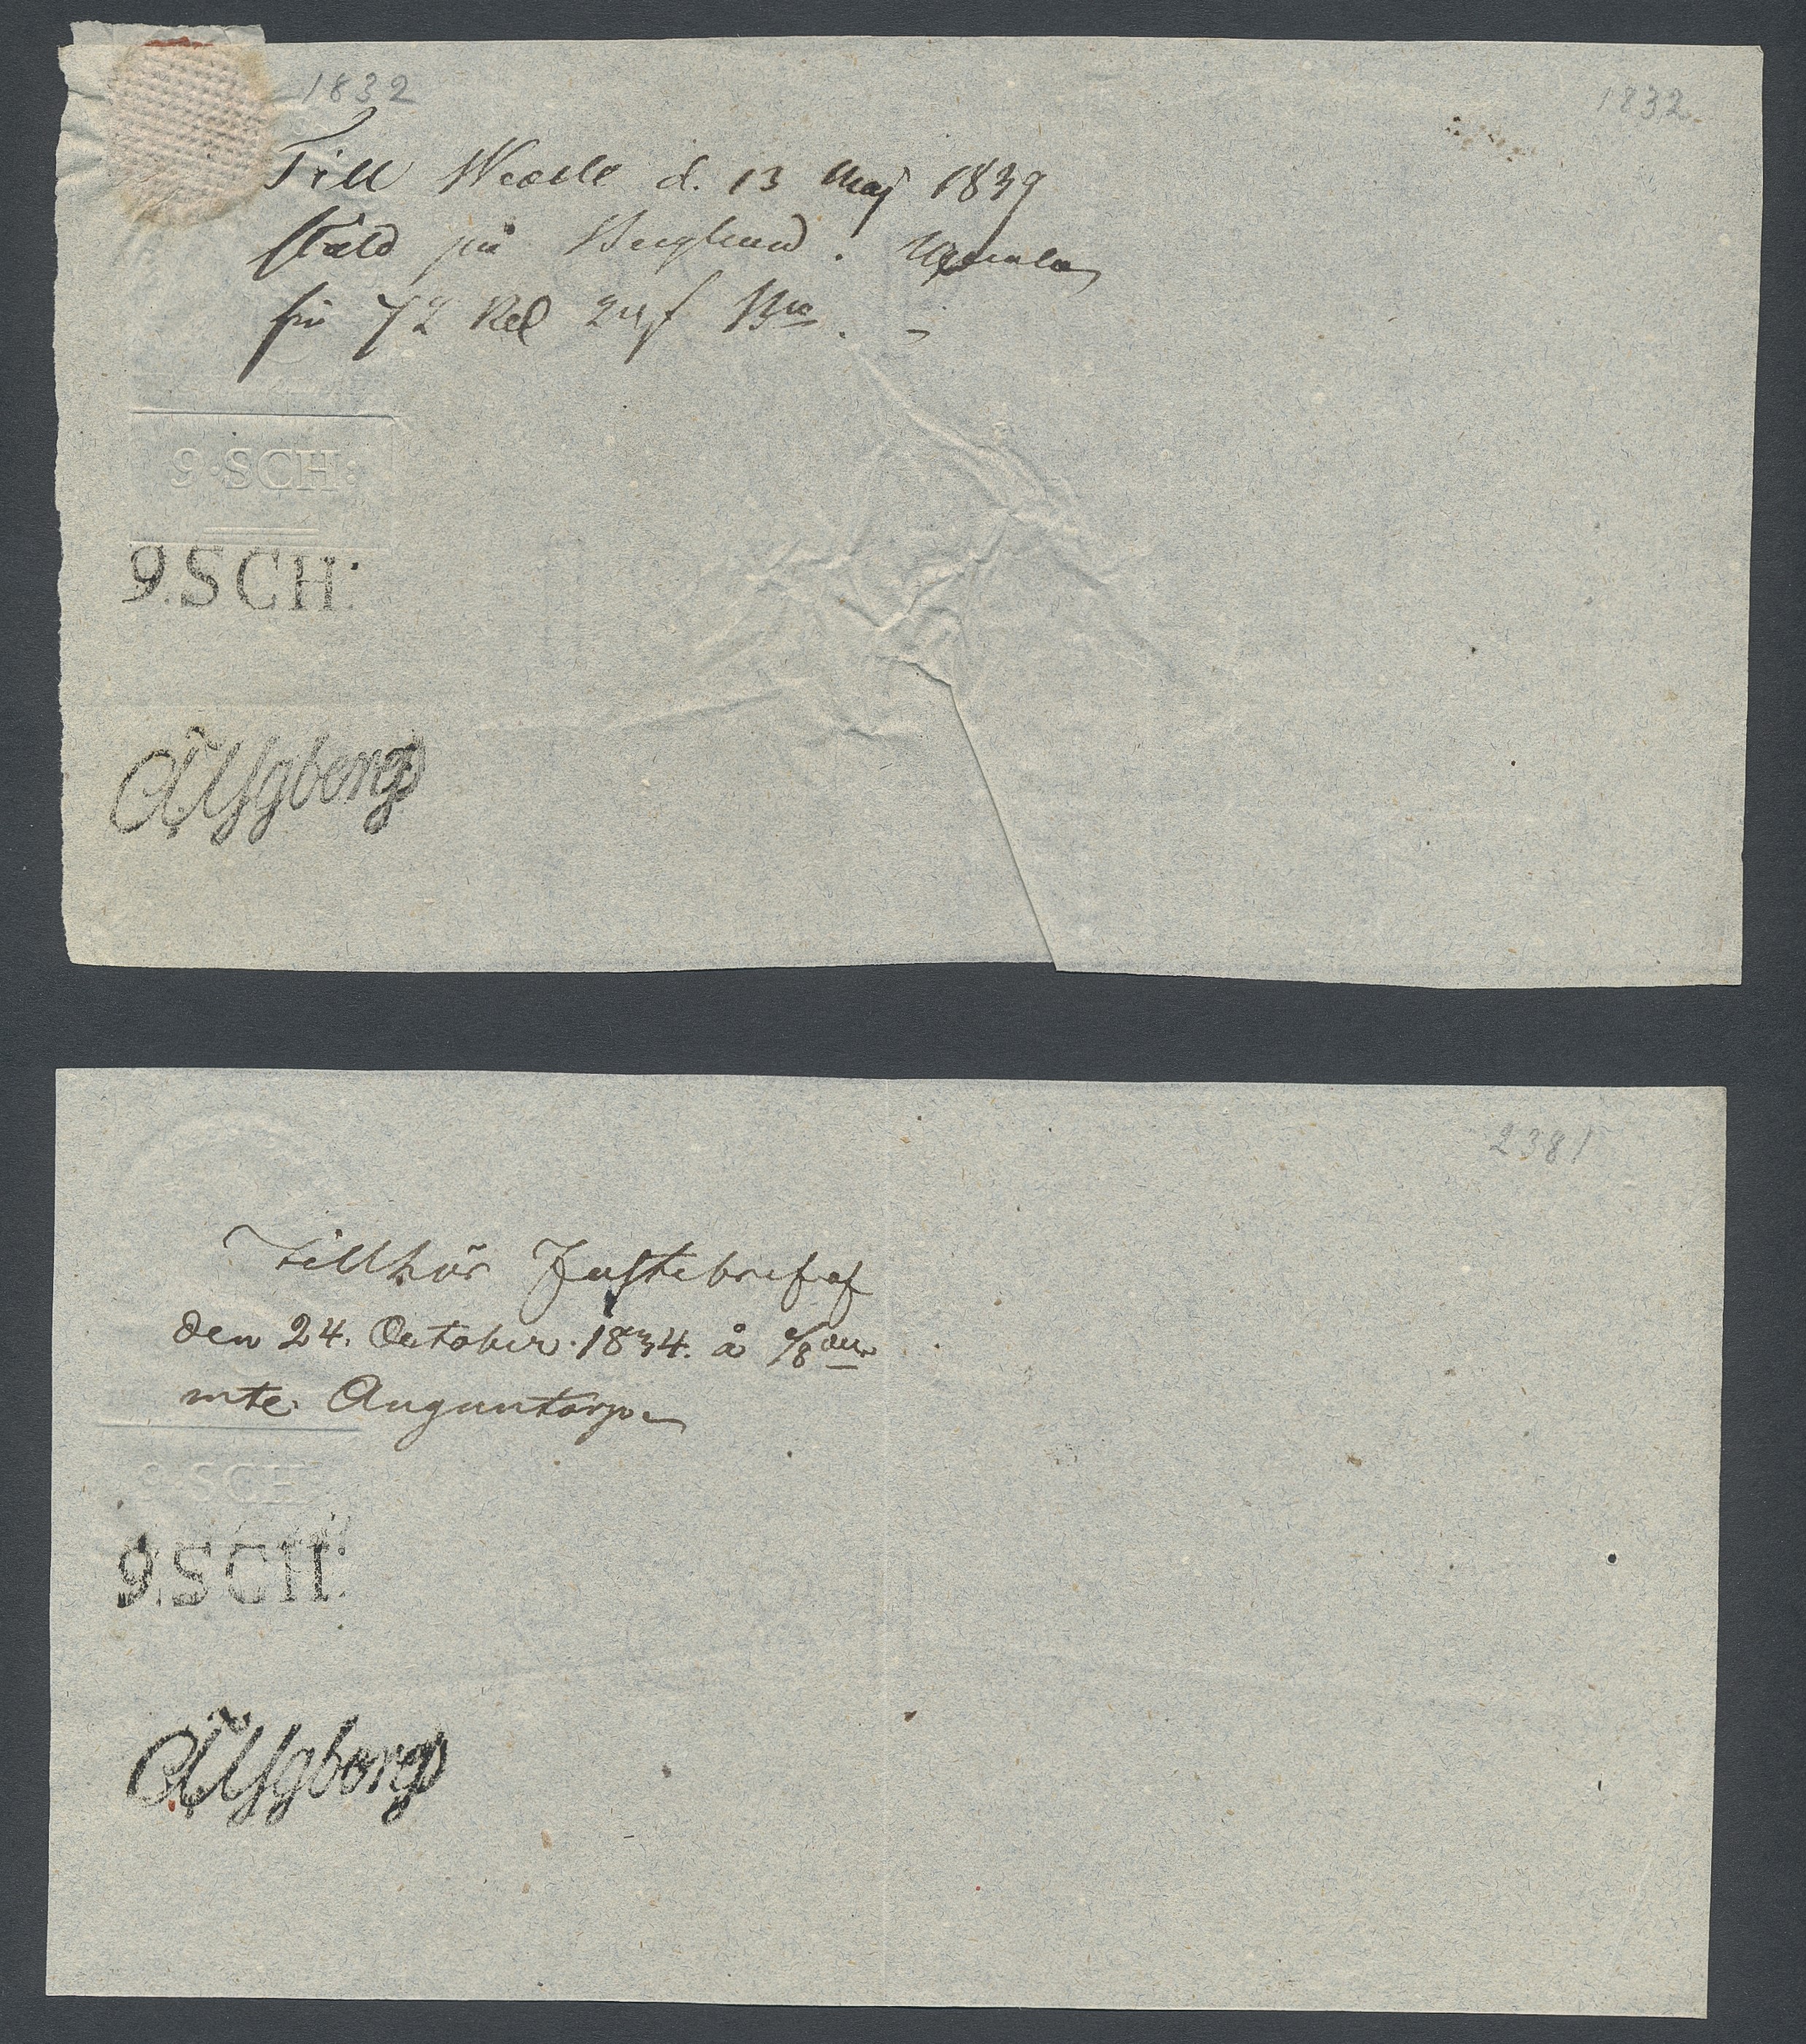 1832
1832.
Till Wexell d. 13 Maj 1839
stäld på Berglund. Upsala
för 72 Rd 24 f Bco. -
9·SCH:
9.SCH:
Älfsborgs
2381
Tillhör Fastebref af
den 24. October 1834. å 1/8
mtl. Auguntorp
9·SCH
9.SCH:
Älfsborgs